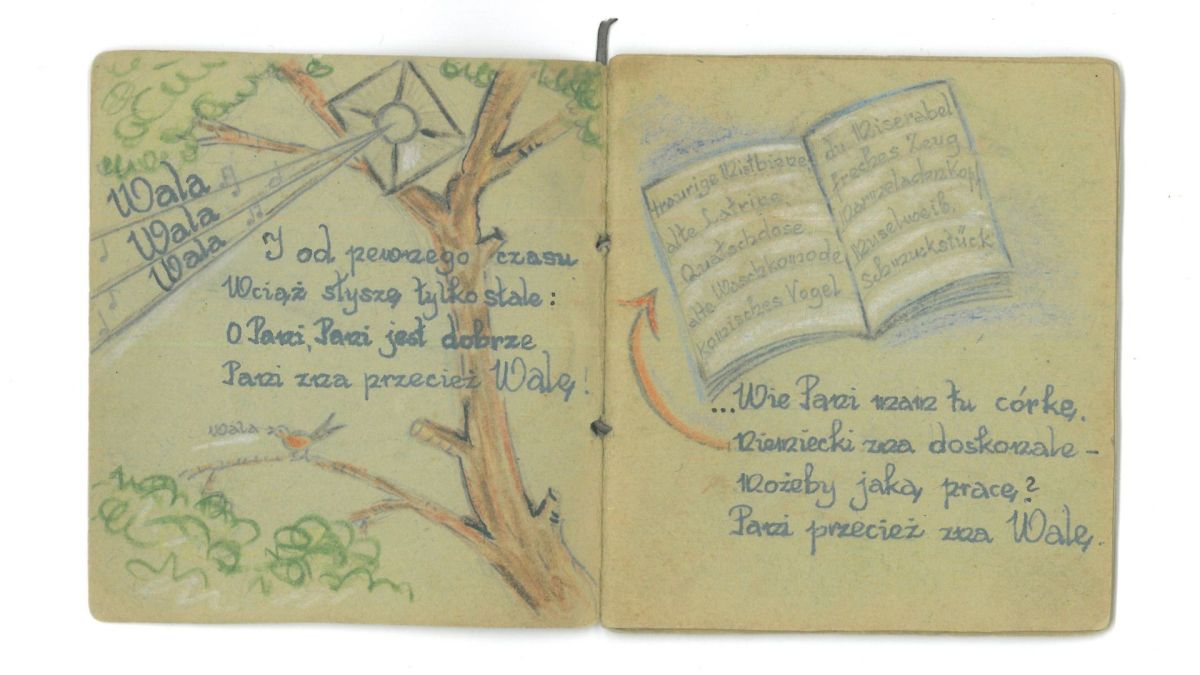 Wala
Wala
Wala
I od pewnego czasu
Wciąż słyszę tylko stale:
O Pani, Pani jest dobrze
Pani zna przecież Walę!
wala
traurige Mistbiene
alte Latrine
Quatschdose
alte Waschkomode
komisches Vogel
du Miserabel
freches Zeug
Marmeladenkopf
Muselweib,
Schmuckstück
...Wie Pani mam tu córkę.
Niemiecki zna doskonale –
Możeby jaką pracę?
Pani przecież zna Walę.